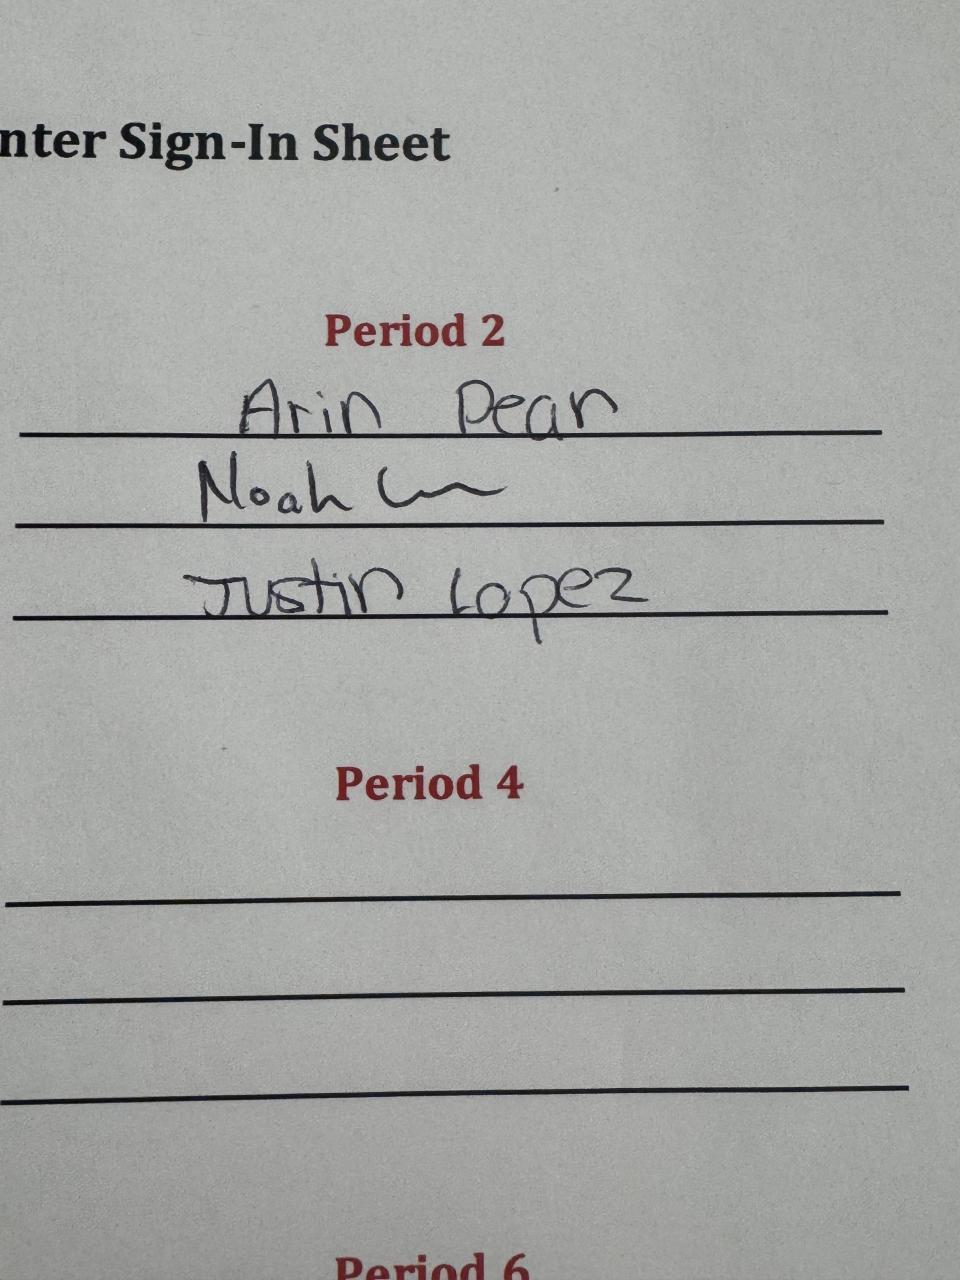 nter Sign-In Sheet
Period 2
Arin Dean
Noah
Justin Lopez
Period 4
Period 6